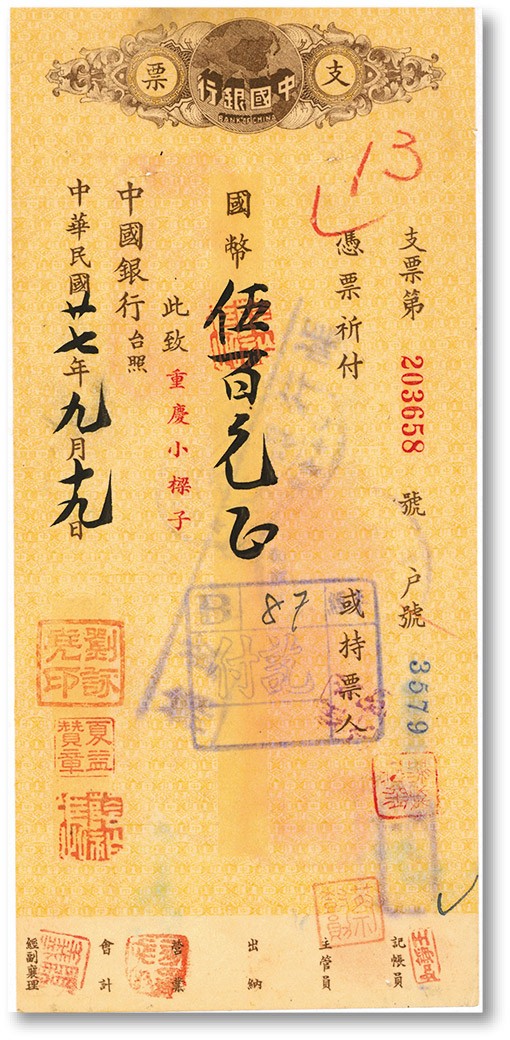 支票
中國銀行
BANK OF CHINA
13
支票第 203658 號 户號 3579
憑票祈付
或持票人
87
B
付訖
國幣伍百元正
此致重慶小樑子
中國銀行台照
中華民國廿七年九月十九日
夏益贊章
記帳員
主管員
出納
營業
會計
經副襄理